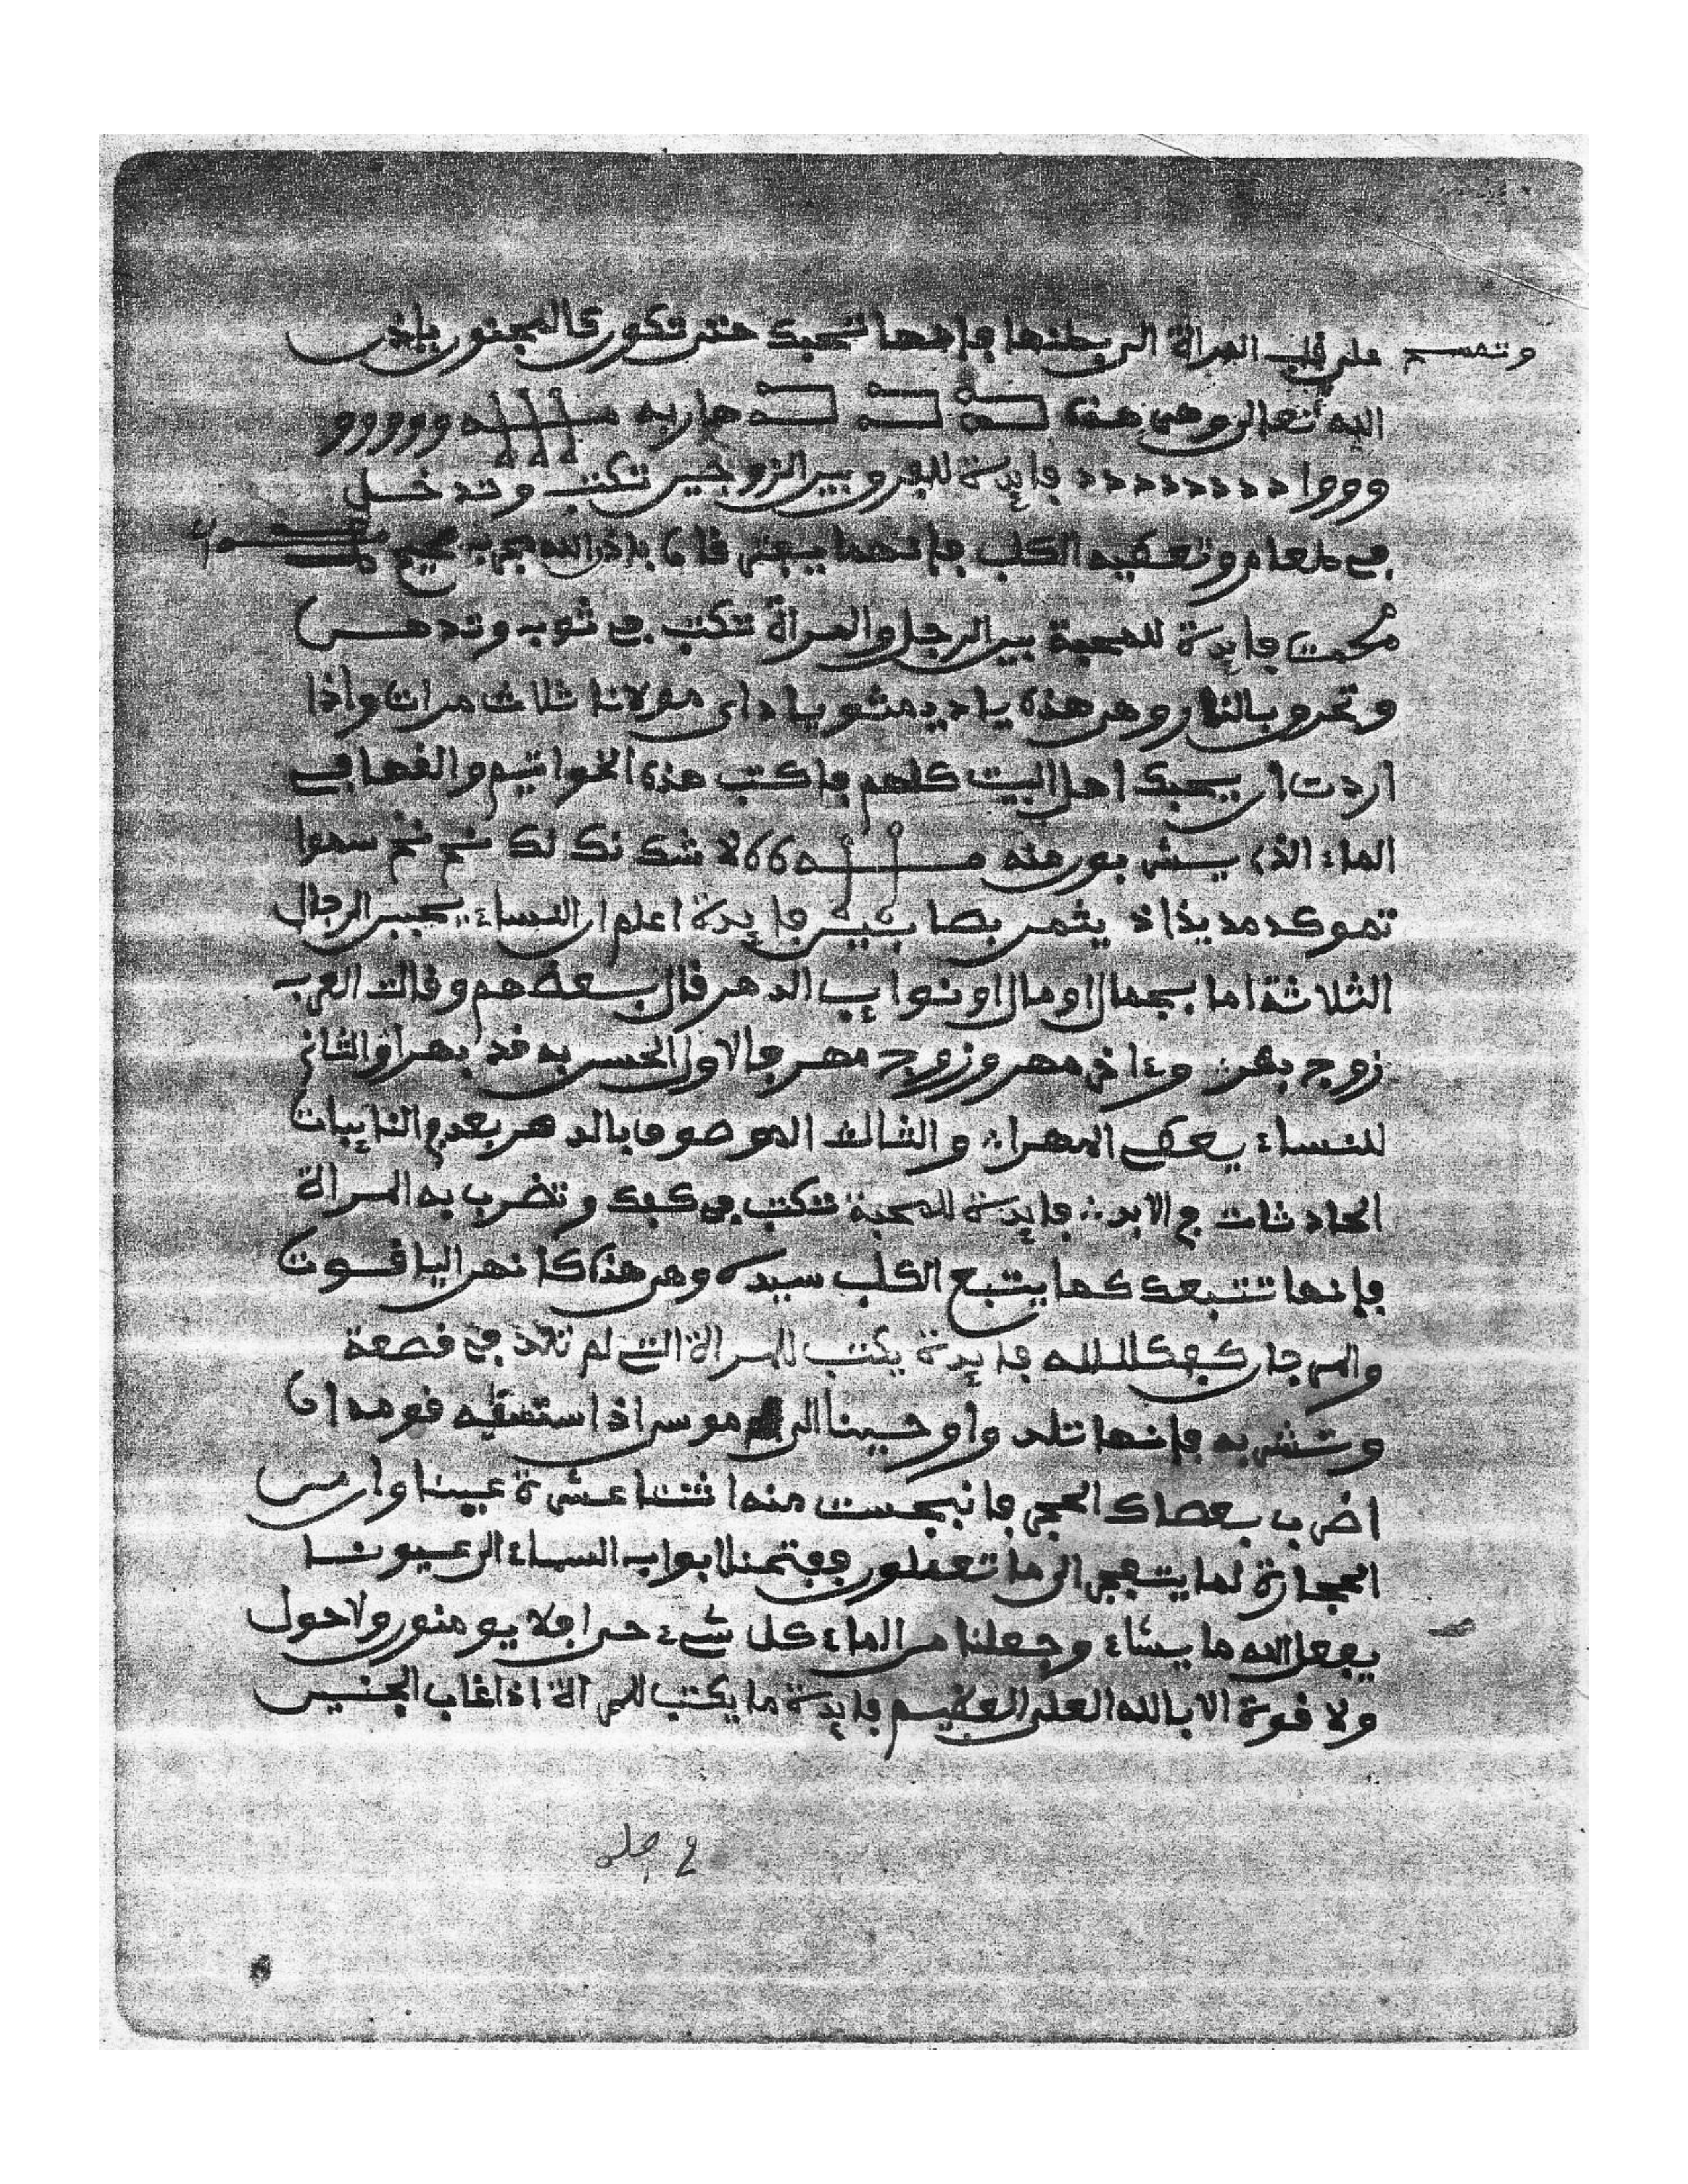 وتمسح على قلب المرأة الى بطنها فإنها تحبك حتى تكون كالمجنون باذن
الله تعالى وهي هذه ووووو
وووا دددددددد فايدة للفروبين الزوجين تكتب وتدخل
في طعام وتعطيه الكلب فإنهما يفترقان باذن الله مجرب صحيح
فايدة للمحبة بين الرجل والمرأة تكتب في ثوب وتدهن
وتحروبالنار وهي هذه ياديمشو يا داي مولانا ثلاث مرات واذا
اردت ان يحبك اهل البيت كلهم فاكتب هذه الخواتيم والقها في
الماء الذي يشربون منه
فايدة اعلم ان النساء يحببن الرجال
الثلاثة اما بجمال او مال او نوايب الدهر قال بعضهم وقالت العرب
زوج بهر وءاخر مهر وزوج مهر فالاول الحسن به قد بهرا والثاني
للنساء يعط المهرا والثالث الموصوف بالدهر يعد في النايبات
الحادثات في الابد فايدة للمحبة تكتب في كفك وتضرب به المرأة
فإنها تتبعك كما يتبع الكلب سيده وهي هذه كانهن الياقوت
والمرجان فايدة يكتب للمرأة التي لم تلد في قصعة
وتشربه فإنها تلد واوحينا الى موسى اذ استسقيه قومه ان
اضرب بعصاك الحجر فانبجست منه اثنتا عشرة عينا وان من
الحجارة لما يتفجر الى ما تعملون ففتحنا ابواب السماء الى عيونا
يفعل الله ما يشاء وجعلنا من الماء كل شيء حي افلا يومنون ولا حول
ولا قوة الا بالله العلي العظيم فايدة ما يكتب للمرأة اذا غاب الجنين